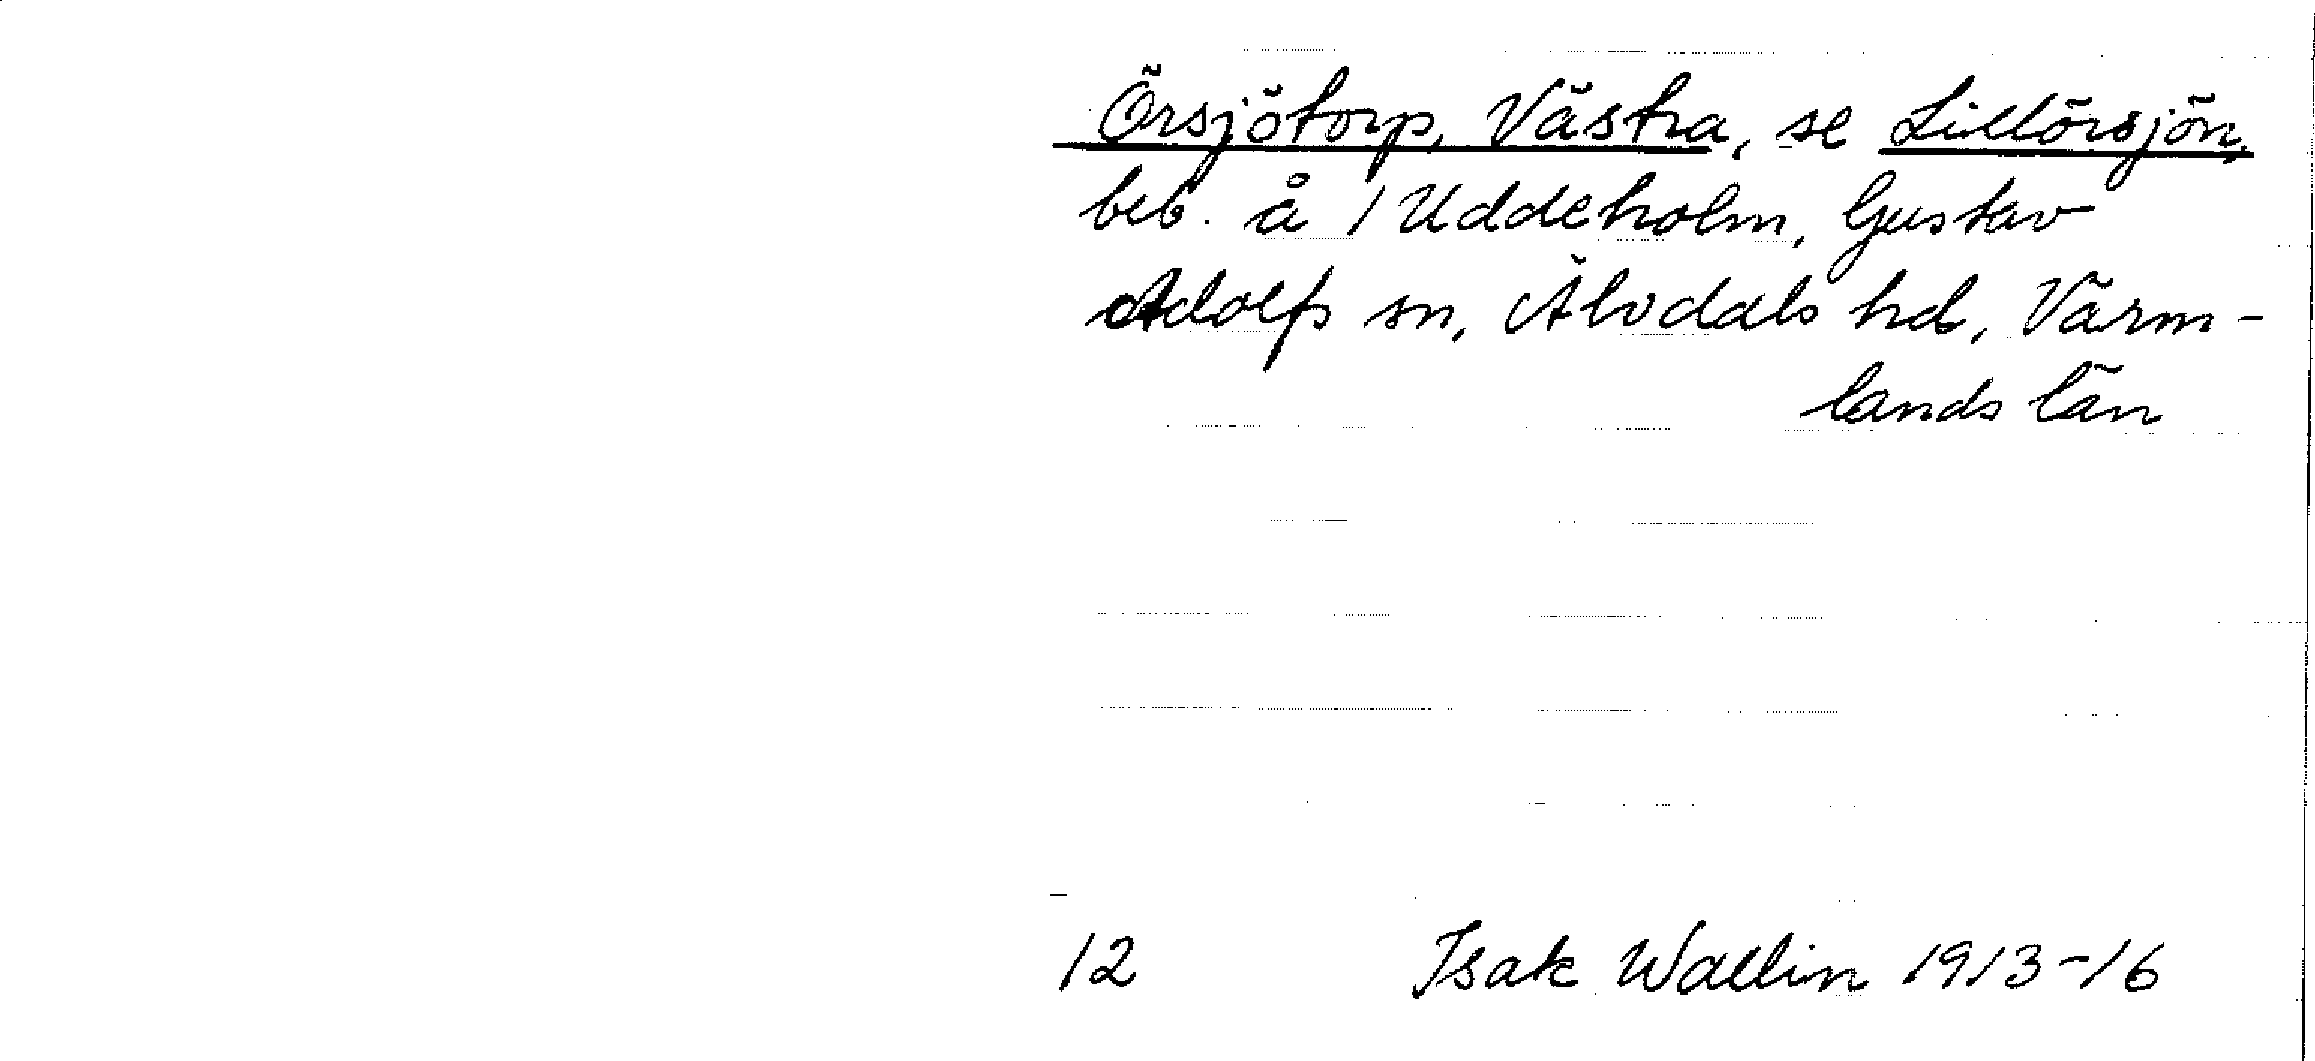 Örsjötorp, Västra, se Lillörsjön,
beb. å 1 Uddeholm, Gustav
Adolfs sn, Älvdals hd, Värm-
lands län
12 Isak Wallin 1913-16